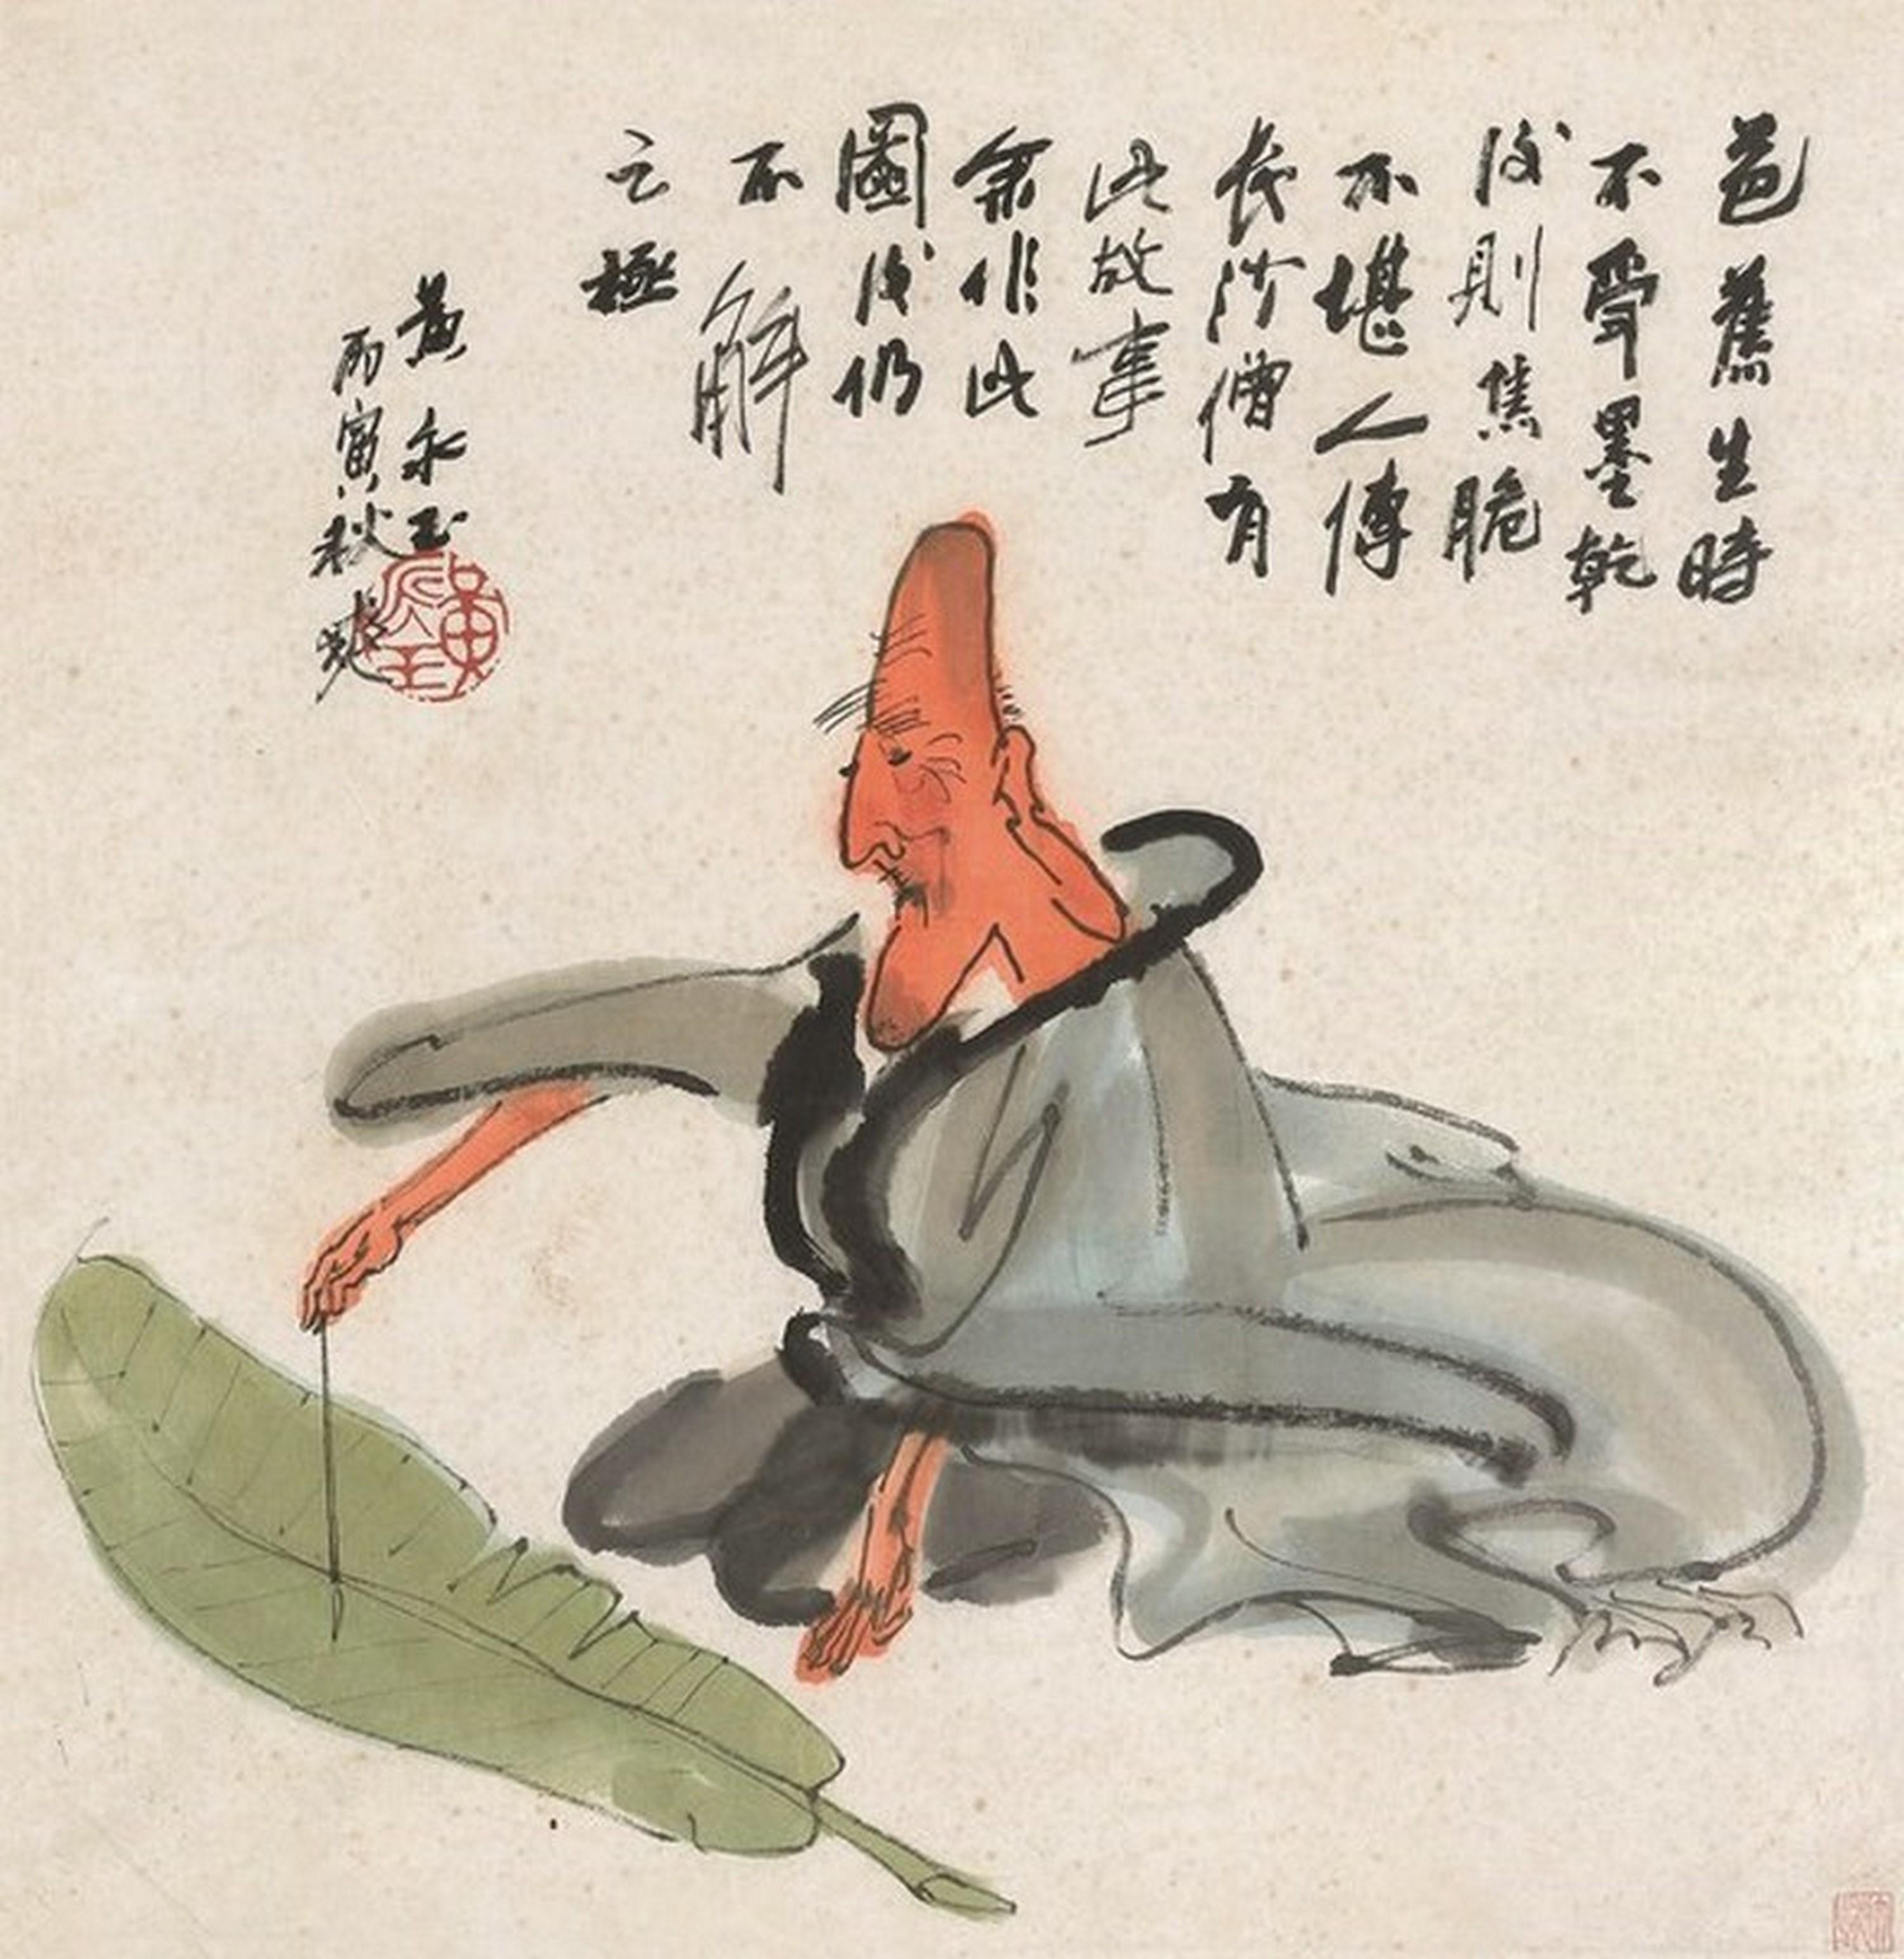 芭蕉生時
不受墨乾
後則焦脆
不堪人傳
長沙僧有
此故事
余作此
圖後仍
不解
之極
黃永玉
丙寅秋晚
黃永玉